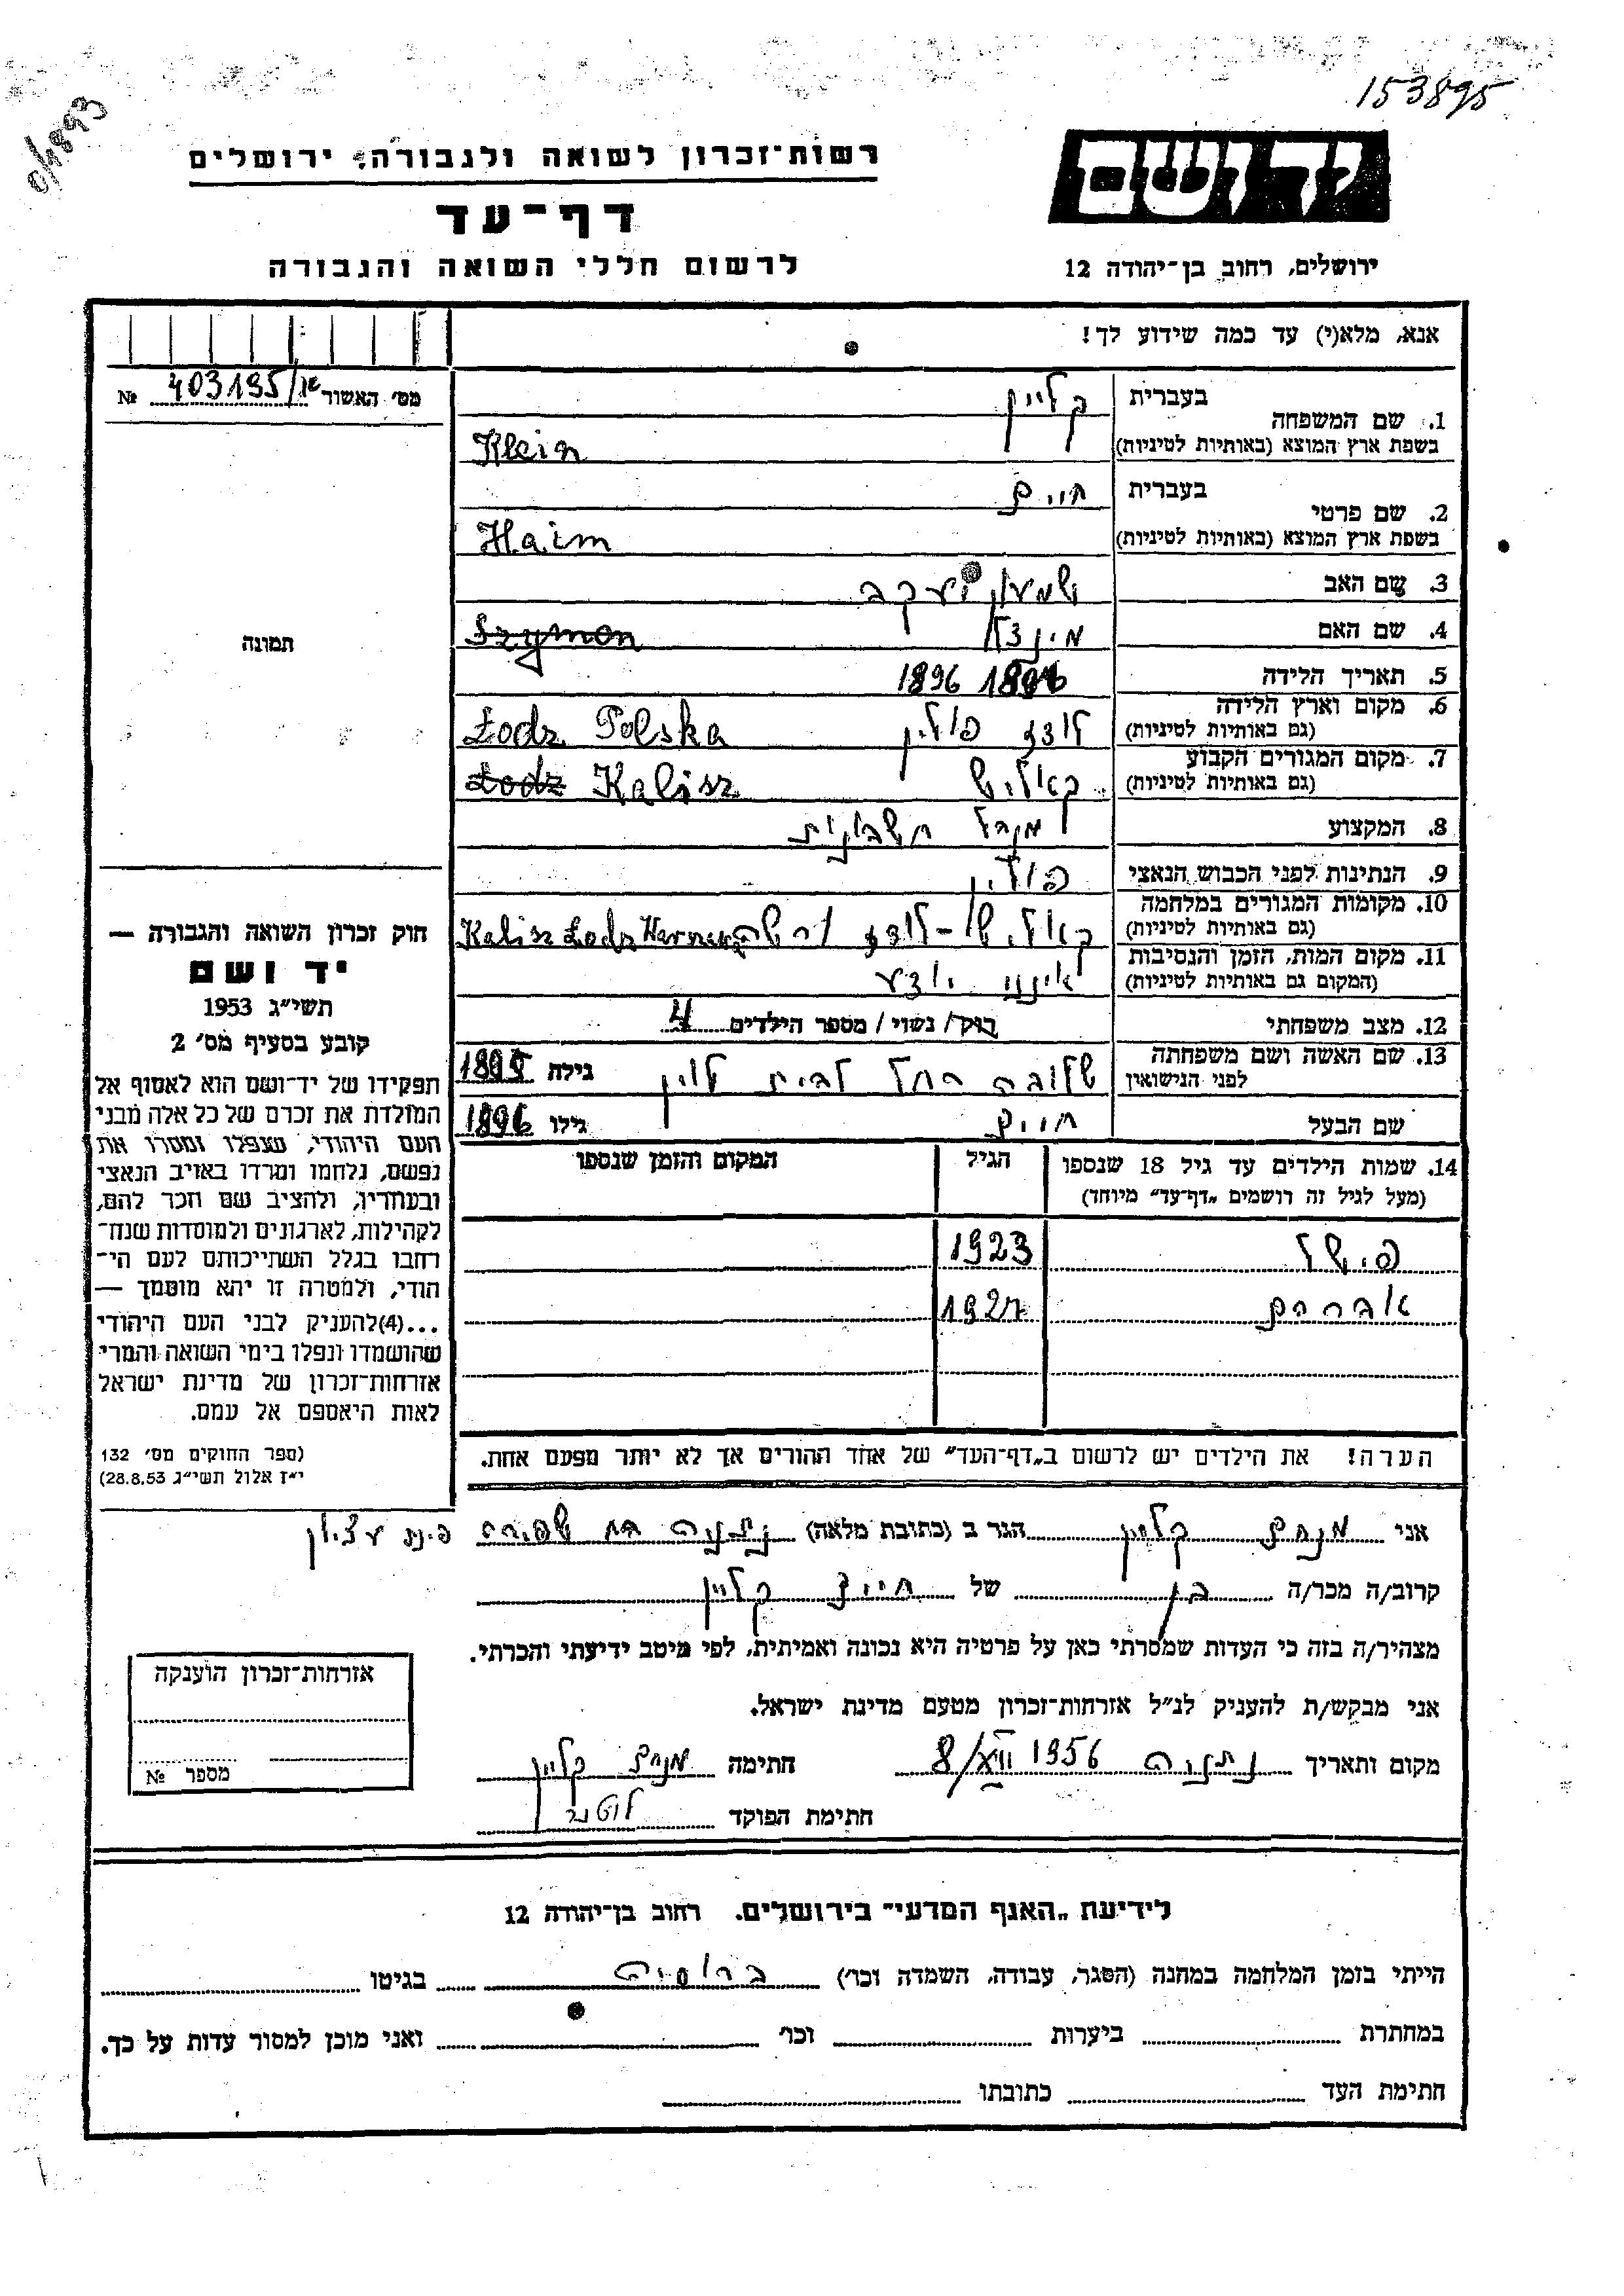 153895
0/4893
יד ושם
רשות־זכרון לשואה ולגבורה, ירושלים
דף־עד
לרשום חללי השואה והגבורה
ירושלים, רחוב בן־יהודה 12
אנא, מלא(י) עד כמה שידוע לך!
מס׳ האשור 403195/ № 
1. שם המשפחה בעברית קליין
בשפת ארץ המוצא (באותיות לטיניות) Klein
2. שם פרטי בעברית חיים
בשפת ארץ המוצא (באותיות לטיניות) Haim
תמונה
3. שם האב שמעון יעקב
4. שם האם Szymon
5. תאריך הלידה 1896
6. מקום וארץ הלידה (גם באותיות לטיניות) לודז פולין Łodz Polska
7. מקום המגורים הקבוע (גם באותיות לטיניות) קאליש Łodz Kalisz
8. המקצוע מנהל חשבונות
9. הנתינות לפני הכבוש הנאצי פולין
10. מקומות המגורים במלחמה (גם באותיות לטיניות) קאליש - לודז ורשה Kalisz Łodz
11. מקום המות, הזמן והנסיבות (המקום גם באותיות לטיניות) אינני יודע
12. מצב משפחתי רוק/ נשוי/ מספר הילדים 4
13. שם האשה ושם משפחתה לפני הנישואין רחל לבית לוין גילה
שם הבעל חיים גילו 1896
14. שמות הילדים עד גיל 18 שנספו (מעל לגיל זה רושמים „דף־עד״ מיוחד) הגיל המקום והזמן שנספו
פישל 1923
אברהם 1927
הערה! את הילדים יש לרשום ב„דף־העד״ של אחד ההורים אך לא יותר מפעם אחת.
חוק זכרון השואה והגבורה —
יד ושם
תשי״ג 1953
קובע בסעיף מס׳ 2
תפקידו של יד־ושם הוא לאסוף אל
המולדת את זכרם של כל אלה מבני
העם היהודי, שנפלו ומסרו את
נפשם, נלחמו ומרדו באויב הנאצי
ובעוזריו, ולהציב שם וזכר להם,
לקהילות, לארגונים ולמוסדות שנח־
רבו בגלל השתייכותם לעם הי־
הודי, ולמטרה זו יהא מוסמך —
...(4) להעניק לבני העם היהודי
שהושמדו ונפלו בימי השואה והמרי
אזרחות־זכרון של מדינת ישראל
לאות היאספם אל עמם.
(ספר החוקים מס׳ 132
י״ז אלול תשי״ג 28.8.53)
אני מנחם קליין הגר ב (כתובת מלאה) נתניה רח שפירא פינת עציון
קרוב/ה מכר/ה בן של חיים קליין
מצהיר/ה בזה כי העדות שמסרתי כאן על פרטיה היא נכונה ואמיתית, לפי מיטב ידיעתי והכרתי.
אני מבקש/ת להעניק לנ״ל אזרחות־זכרון מטעם מדינת ישראל.
מקום ותאריך נתניה 8/XII 1956 חתימה מנחם קליין
חתימת הפוקד
אזרחות־זכרון הוענקה
מספר №
לידיעת „האגף המדעי״ בירושלים. רחוב בן־יהודה 12
הייתי בזמן המלחמה במחנה (הסגר, עבודה, השמדה וכו׳) ברוסיה בגיטו
במחתרת ביערות וכו׳ ואני מוכן למסור עדות על כך.
חתימת העד כתובתו